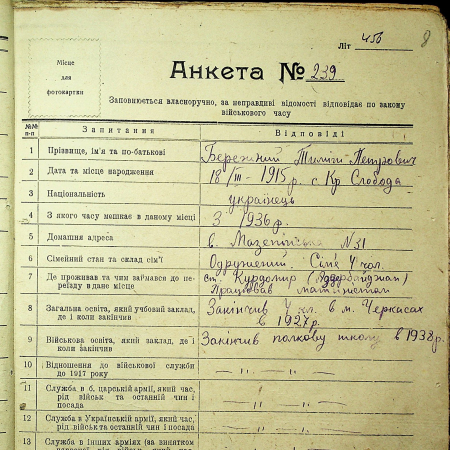 Літ 456
8
Місце
для
фотокартки
Анкета № 239
Заповнюється власноручно, за неправдиві відомості відповідає по закону
військового часу
№№ п-п
Запитання
Відповіді
1 Прізвище, ім'я та по-батькові
Бережний Тиміш Петрович
2 Дата та місце народження
18/III - 1915 р. с. Кр Слобода
3 Національність
українець
4 З якого часу мешкає в даному місці
З 1936 р.
5 Домашня адреса
в. Мазепінська N 31
6 Сімейний стан та склад сім'ї
Одружений. Сім'я 4 чол.
7 Де проживав та чим займався до переїзду в дане місце
ст. Курдомір (Аддербейджан)
Працював
8 Загальна освіта, який учбовий заклад, де і коли закінчив
Закінчив 4 кл. в м. Черкасах
в 1927 р.
9 Військова освіта, який заклад, де і коли закінчив
Закінчив полкову школу в 1938 р.
10 Відношення до військової служби до 1917 року
— " —
11 Служба в б. царській армії, який час, рід військ та останній чин і посада
— " —
12 Служба в Українській армії, який час, рід військ та останній чин і посада
— " —
13 Служба в інших арміях (за винятком